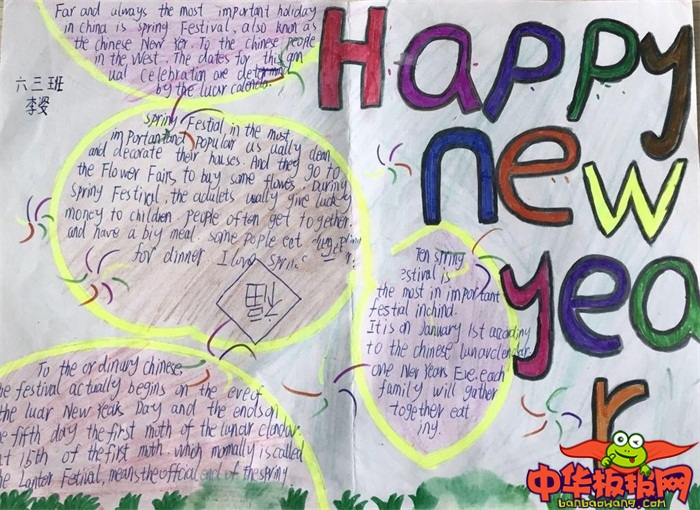 Far and always the most important holiday
in China is spring Festival, also knon as
the chinese New Yer. To the chinese people
in the West. The dates for this ann
ual celebration are
by the lucar
六三班
李婆
Happy
new
year
spring Festial, in the must
importantand popular us ually dean
and decorate their houses. And they go to
the Flower Fairs, to buy some flowers During
spring Festival, the adulets ually give luck
money to children people often get together
and have a big meal. some Pople eet
for dinner. I love
福
Ten spring
estival is
the most in important
festial inchind.
It is on January 1st according
to the chinese
one New Years Eve. each
family will gather
together eat
ing.
To the ordinary chinese
he festival actually begins on the eve of
the luar New Years Day and the ends on
he fifth day the first moth of the lunar
at 15th of the first moth. which mornally is called
he Lanter Fetival, means the offcial end of the spring
中华板报网
banbaowang.com